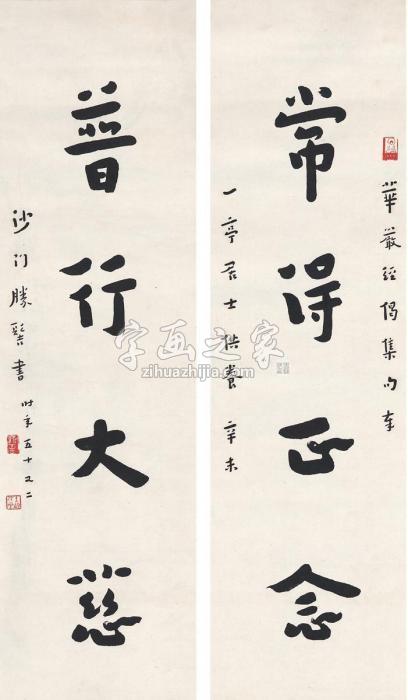 華嚴經偈集句奉
常得正念
一亭居士供養 辛未
普行大慈
沙門勝髻書 時年五十又二
字画之家
zihuazhijia.com